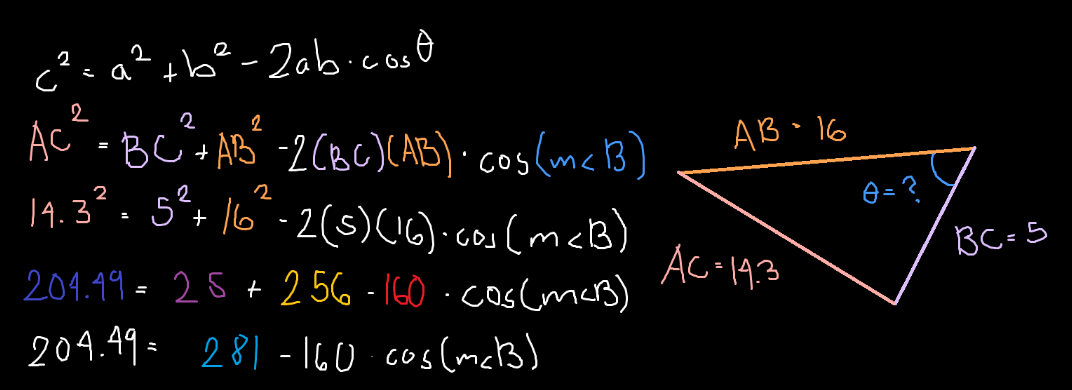 c² = a² + b² - 2ab · cosθ
AC² = BC² + AB² - 2(BC)(AB) · cos(m<B)
14.3² = 5² + 16² - 2(5)(16) · cos(m<B)
204.49 = 25 + 256 - 160 · cos(m<B)
204.49 = 281 - 160 · cos(m<B)
AB = 16
θ = ?
BC = 5
AC = 14.3